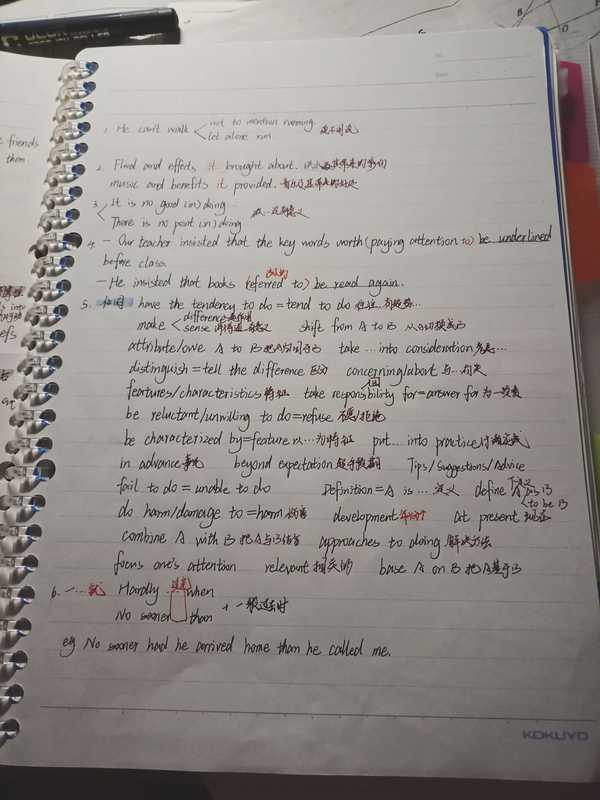 e friends
them.
1. He can't walk not to mention running. 更不用说
let alone run.
2. Flood and effects it brought about. 洪水及其带来的影响
music and benefits it provided. 音乐及其带来的好处
3. It is no good (in) doing...
There is no point (in) doing 没意义
4. - Our teacher insisted that the key words worth (paying attention to) be underlined
before class.
- He insisted that books (referred to) be read again.
5. 词组 have the tendency to do = tend to do 往往
make difference
sense shift from A to B 从A切换成B
attribute/owe A to B 把A归因于B take ... into consideration 考虑...
distinguish = tell the difference 区分 concerning/about 与...有关
features/characteristics 特征 take responsibility for = answer for 为...负责
be reluctant/unwilling to do = refuse 不愿/拒绝
be characterized by = feature 以...为特征 put ... into practice 付诸实践
in advance 事先 beyond expectation 超乎预期 Tips/Suggestions/Advice
fail to do = unable to do Definition = A is ... 定义 define A as B
to be B
do harm/damage to = harm 伤害 development at present 现在
combine A with B 把A与B结合 approaches to doing 解决方法
focus one's attention relevant 相关的 base A on B 把A基于B
6. 一...就 Hardly when
No sooner than + 一般过去时
eg No sooner had he arrived home than he called me.
KOKUYO